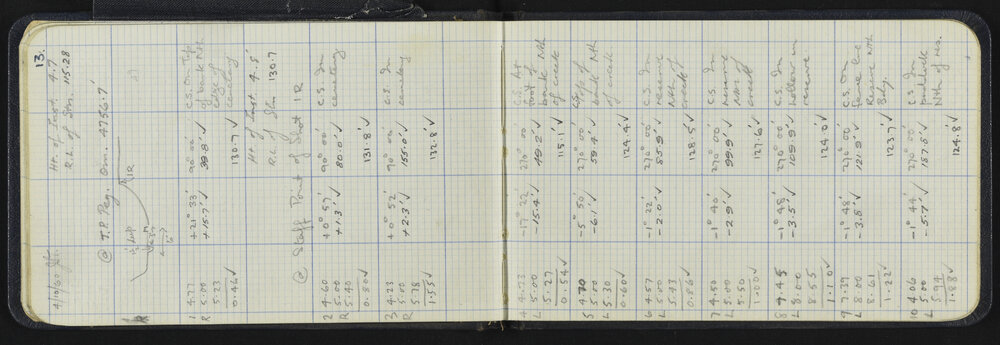 13.
4/10/60 Ht. of Inst. 4.7
R.L. of Stn. 115.28
@ T.P. Peg. on. 4756.7
1R
1 4.77 +21° 33' 90° 00' C.S. on Top
R 5.00 +15.7' ✓ 39.8' ✓ of bank Nth
5.23 edge of
0.46 ✓ 130.7 ✓ cemetery
Ht of Inst. 4.5'
R.L. of Stn 130.7
@ Staff Point of Shot 1R
2 4.60 +0° 57' 90° 00' C.S. In
R 5.00 +1.3' ✓ 80.0' ✓ cemetery
5.40
0.80 ✓ 131.8' ✓
3 4.23 +0° 52' 90° 00' C.S. In
R 5.00 +2.3' ✓ 155.0' ✓ cemetery
5.78
1.55 ✓ 132.8 ✓
4 4.73 -17° 22' 270° 00' C.S. At
L 5.00 -15.4' ✓ 49.2' ✓ foot of
5.27 bank Nth
0.54 ✓ 115.1' ✓ of creek
5 4.70 -5° 50' 270° 00' C.S.
L 5.00 -6.1' ✓ 59.4' ✓ Top of
5.30 bank Nth
0.60 ✓ 124.4 ✓ of creek
6 4.57 -1° 22' 270° 00' C.S. In
L 5.00 -2.0' ✓ 85.9' ✓ reserve
5.43 Nth of
0.86 ✓ 128.5 ✓ creek
7 4.50 -1° 40' 270° 00' C.S. In
L 5.00 -2.9' ✓ 99.9' ✓ reserve
5.50 Nth of
1.00 ✓ 127.6 ✓ creek
8 7.45 -1° 48' 270° 00' C.S. In
L 8.00 -3.5' ✓ 109.9' ✓ hollow in
8.55 reserve
1.10 ✓ 124.0 ✓
9 7.39 -1° 48' 270° 00' C.S. On
L 8.00 -3.8' ✓ 121.9' ✓ Fence line
8.61 Reserve Nth
1.22 ✓ 123.7 ✓ Bdy.
10 4.06 -1° 44' 270° 00' C.S. In
L 5.00 -5.7' ✓ 187.8' ✓ paddock
5.94 Nth of
1.88 ✓ 124.8' ✓